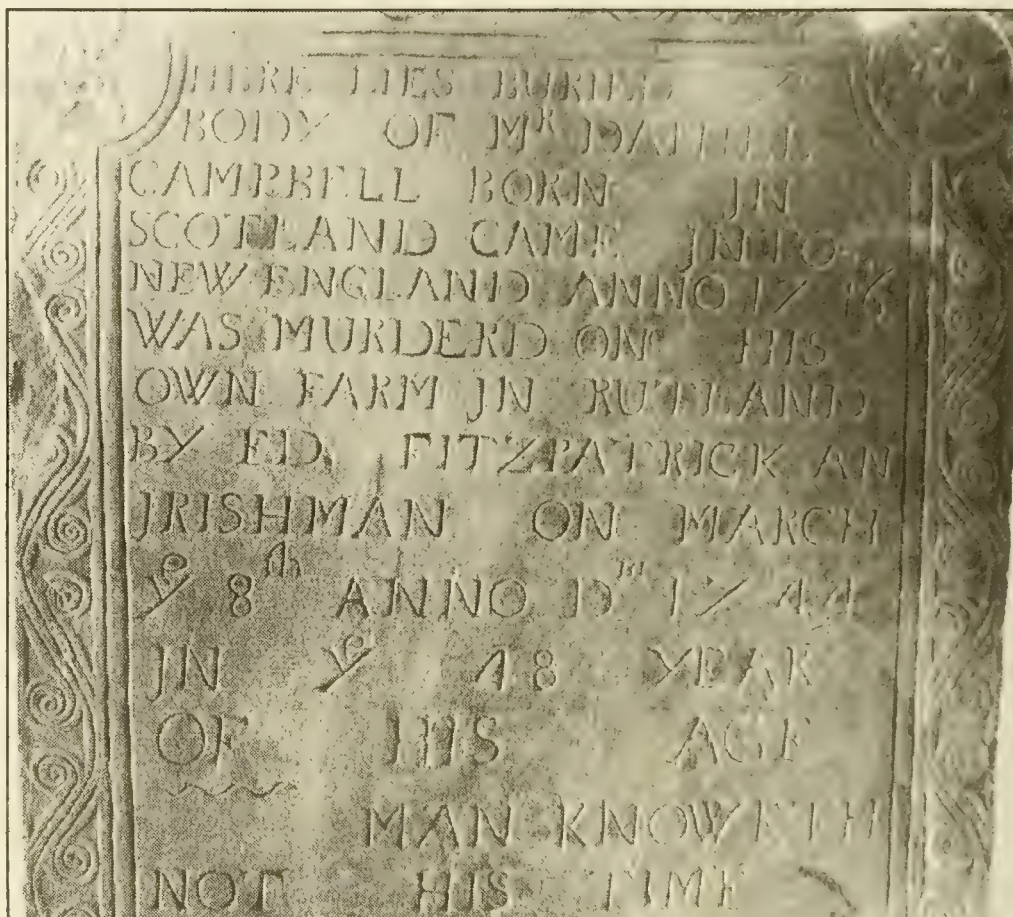 HERE LIES BURIED Yᵉ
BODY OF Mᴿ DANIEL
CAMPBELL BORN JN
SCOTLAND CAME JNTO
NEW ENGLAND ANNO 1716
WAS MURDERD ON HIS
OWN FARM JN RUTLAND
BY ED. FITZPATRICK AN
JRISHMAN ON MARCH
Yᵉ 8ᵗʰ ANNO Dᵐ 1744
JN Yᵉ 48 YEAR
OF HIS AGE
MAN KNOWETH
NOT HIS TIME